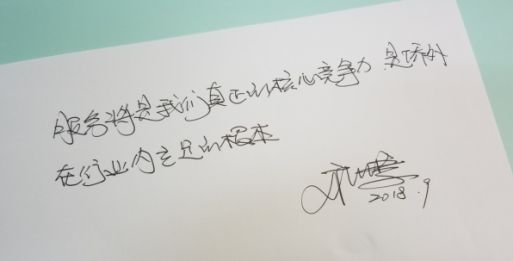 服务将是我们真正的核心竞争力 是侨外
在行业内立足的根本
2018.9